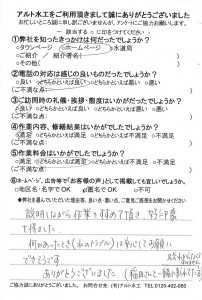 アルト水工をご利用頂きまして誠にありがとうございました
お忙しいところ誠に申し訳ございませんが、アンケートにご協力お願いします。
該当する □ に印をつけてください。
①弊社を知ったきっかけは何だったでしょうか？
□タウンページ □ホームページ □水道局
□ご紹介 ／ 紹介者名(
□その他(
②電話の対応は感じの良いものだったでしょうか？
□良い □どちらかといえば良い □どちらかといえば悪い □悪い
ご意見
③ご訪問時の礼儀・挨拶・態度はいかがだったでしょうか？
□良い □どちらかといえば良い □どちらかといえば悪い □悪い
ご意見
④作業内容、修繕結果はいかがだったでしょうか？
□満足 □どちらかといえば満足 □どちらかといえば不満足 □不満足
ご意見
⑤作業料金はいかがでしたでしょうか？
□満足 □どちらかといえば満足 □どちらかといえば不満足 □不満足
ご意見
⑥ホームページ、広告等で「お客様の声」として掲載しても宜しいでしょうか。
□地区名・名字でOK □匿名でOK □不可
◆弊社を選んでいただいた理由、良い点・悪い点、ご意見、ご感想をお聞かせください◆
説明しながら作業を すすめて頂き、好印象
を持ちました。
何かあったとき(水のトラブル)は安心してお願い
できそうです
ありがとうございました
ご協力誠にありがとうございました。 お問合せ先 (有)アルト水工 TEL:0120-492-060